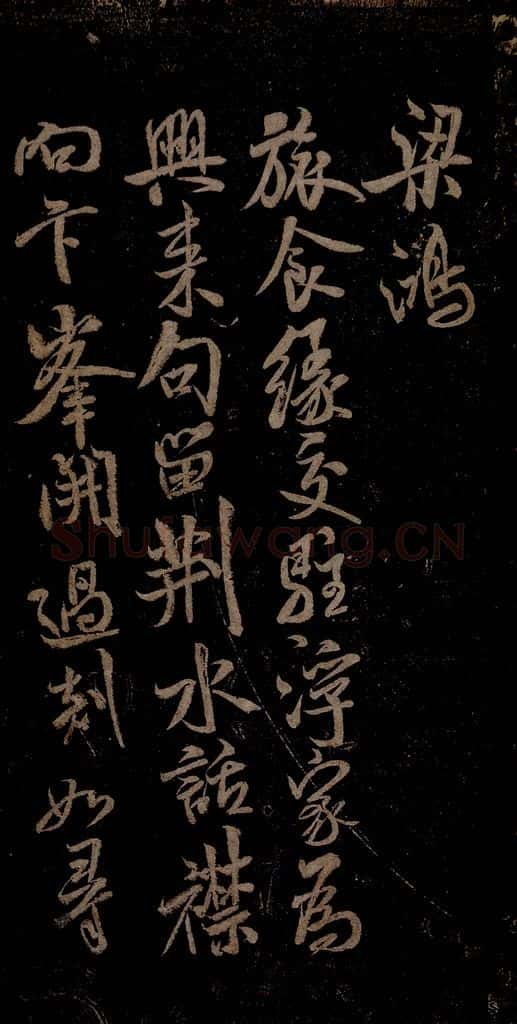 梁鴻
旅食緣交駐浮家為
興来句留荆水話襟
向卞峯開過剡如尋
Shufawang.CN